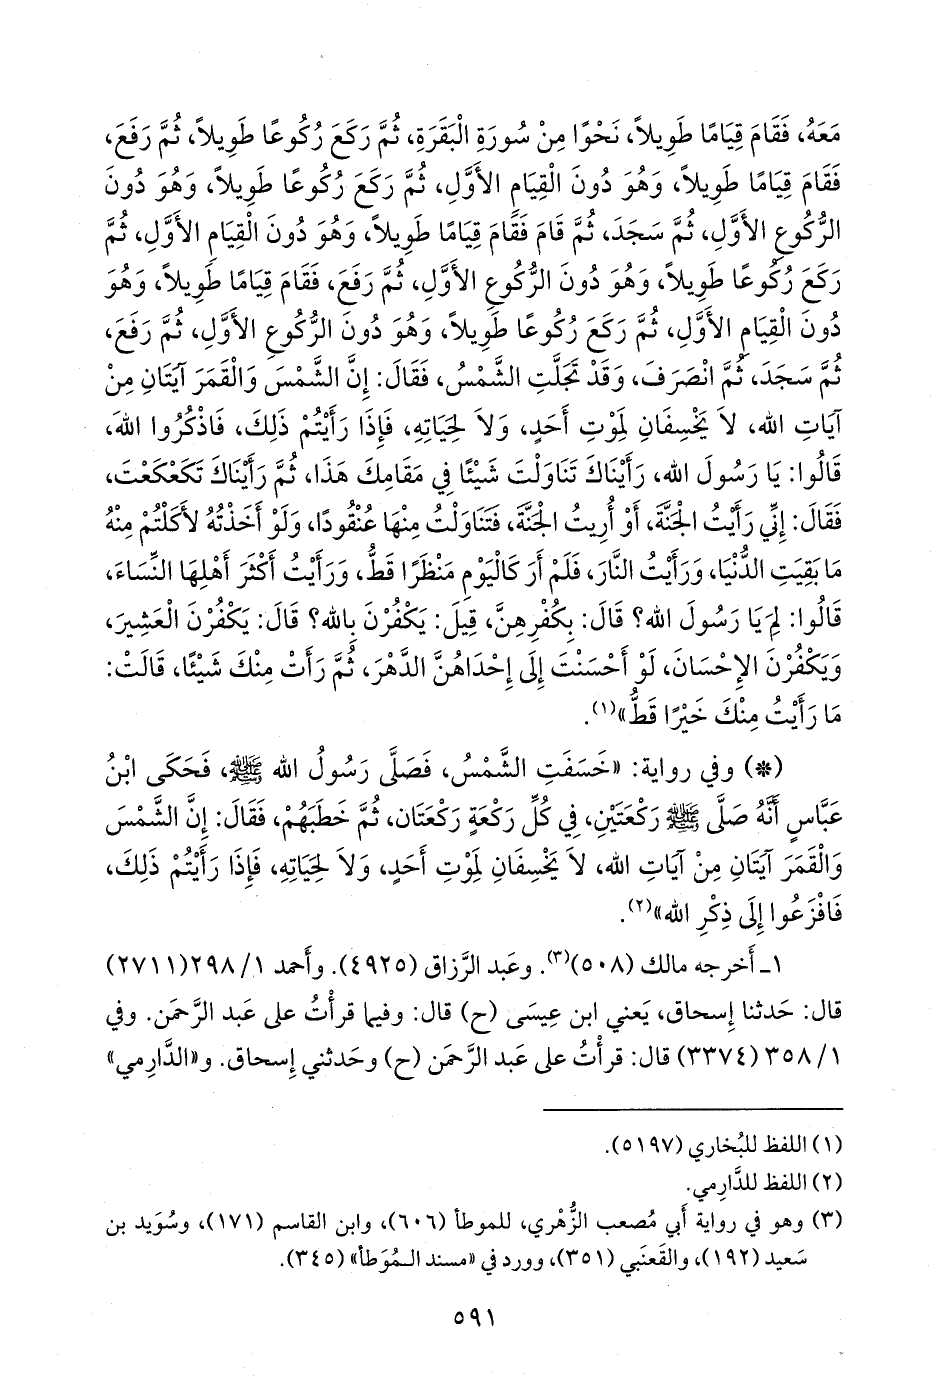 مَعَهُ، فَقَامَ قِيَامًا طَوِيلاً، نَحْوًا مِنْ سُورَةِ الْبَقَرَةِ، ثُمَّ رَكَعَ رُكُوعًا طَوِيلاً، ثُمَّ رَفَعَ،
فَقَامَ قِيَامًا طَوِيلاً، وَهُوَ دُونَ الْقِيَامِ الأَوَّلِ، ثُمَّ رَكَعَ رُكُوعًا طَوِيلاً، وَهُوَ دُونَ
الرُّكُوعِ الأَوَّلِ، ثُمَّ سَجَدَ، ثُمَّ قَامَ فَقَامَ قِيَامًا طَوِيلاً، وَهُوَ دُونَ الْقِيَامِ الأَوَّلِ، ثُمَّ
رَكَعَ رُكُوعًا طَوِيلاً، وَهُوَ دُونَ الرُّكُوعِ الأَوَّلِ، ثُمَّ رَفَعَ، فَقَامَ قِيَامًا طَوِيلاً، وَهُوَ
دُونَ الْقِيَامِ الأَوَّلِ، ثُمَّ رَكَعَ رُكُوعًا طَوِيلاً، وَهُوَ دُونَ الرُّكُوعِ الأَوَّلِ، ثُمَّ رَفَعَ،
ثُمَّ سَجَدَ، ثُمَّ انْصَرَفَ، وَقَدْ تَجَلَّتِ الشَّمْسُ، فَقَالَ: إِنَّ الشَّمْسَ وَالْقَمَرَ آيَتَانِ مِنْ
آيَاتِ الله، لاَ يَخْسِفَانِ لِمَوْتِ أَحَدٍ، وَلاَ لِحَيَاتِهِ، فَإِذَا رَأَيْتُمْ ذَلِكَ، فَاذْكُرُوا اللهَ،
قَالُوا: يَا رَسُولَ الله، رَأَيْنَاكَ تَنَاوَلْتَ شَيْئًا فِي مَقَامِكَ هَذَا، ثُمَّ رَأَيْنَاكَ تَكَعْكَعْتَ،
فَقَالَ: إِنِّي رَأَيْتُ الْجَنَّةَ، أَوْ أُرِيتُ الْجَنَّةَ، فَتَنَاوَلْتُ مِنْهَا عُنْقُودًا، وَلَوْ أَخَذْتُهُ لأَكَلْتُمْ مِنْهُ
مَا بَقِيَتِ الدُّنْيَا، وَرَأَيْتُ النَّارَ، فَلَمْ أَرَ كَالْيَوْمِ مَنْظَرًا قَطُّ، وَرَأَيْتُ أَكْثَرَ أَهْلِهَا النِّسَاءَ،
قَالُوا: لِمَ يَا رَسُولَ الله؟ قَالَ: بِكُفْرِهِنَّ، قِيلَ: يَكْفُرْنَ بِالله؟ قَالَ: يَكْفُرْنَ الْعَشِيرَ،
وَيَكْفُرْنَ الإِحْسَانَ، لَوْ أَحْسَنْتَ إِلَى إِحْدَاهُنَّ الدَّهْرَ، ثُمَّ رَأَتْ مِنْكَ شَيْئًا، قَالَتْ:
مَا رَأَيْتُ مِنْكَ خَيْرًا قَطُّ»(١).
(*) وفي رواية: «خَسَفَتِ الشَّمْسُ، فَصَلَّى رَسُولُ الله ﷺ، فَحَكَى ابْنُ
عَبَّاسٍ أَنَّهُ صَلَّى ﷺ رَكْعَتَيْنِ، فِي كُلِّ رَكْعَةٍ رَكْعَتَانِ، ثُمَّ خَطَبَهُمْ، فَقَالَ: إِنَّ الشَّمْسَ
وَالْقَمَرَ آيَتَانِ مِنْ آيَاتِ الله، لاَ يَخْسِفَانِ لِمَوْتِ أَحَدٍ، وَلاَ لِحَيَاتِهِ، فَإِذَا رَأَيْتُمْ ذَلِكَ،
فَافْزَعُوا إِلَى ذِكْرِ الله»(٢).
١ـ أَخرجه مالك (٥٠٨)(٣). وعَبد الرَّزاق (٤٩٢٥). وأَحمد ١/ ٢٩٨(٢٧١١)
قال: حَدثنا إِسحاق، يَعني ابن عِيسَى (ح) قال: وفيما قرأْتُ على عَبد الرَّحمَن. وفي
١/ ٣٥٨ (٣٣٧٤) قال: قرأْتُ على عَبد الرَّحمَن (ح) وحَدثني إِسحاق. و«الدَّارِمي»
(١) اللفظ للبُخاري (٥١٩٧).
(٢) اللفظ للدَّارِمي.
(٣) وهو في رواية أَبي مُصعب الزُّهْري، للموطأ (٦٠٦)، وابن القاسم (١٧١)، وسُوَيد بن
سَعيد (١٩٢)، والقَعنَبي (٣٥١)، وورد في «مسند الـمُوَطأ» (٣٤٥).
٥٩١